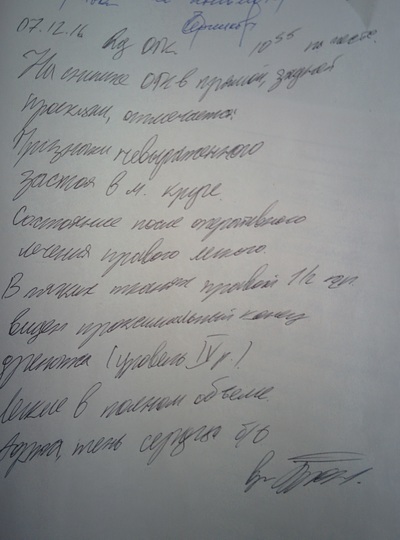 07.12.16 Rg ОГК 10⁵⁵ на месте.
На снимке ОГК в прямой, задней
проекции, отмечается:
Признаки невыраженного
застоя в м. круге.
Состояние после оперативного
лечения правого легкого.
В мягких тканях правой 1/2 гр.
виден проксимальный конец
дренажа (уровень IV р.)
Легкие в полном объеме.
Аорта, тень сердца б/о
Вр.